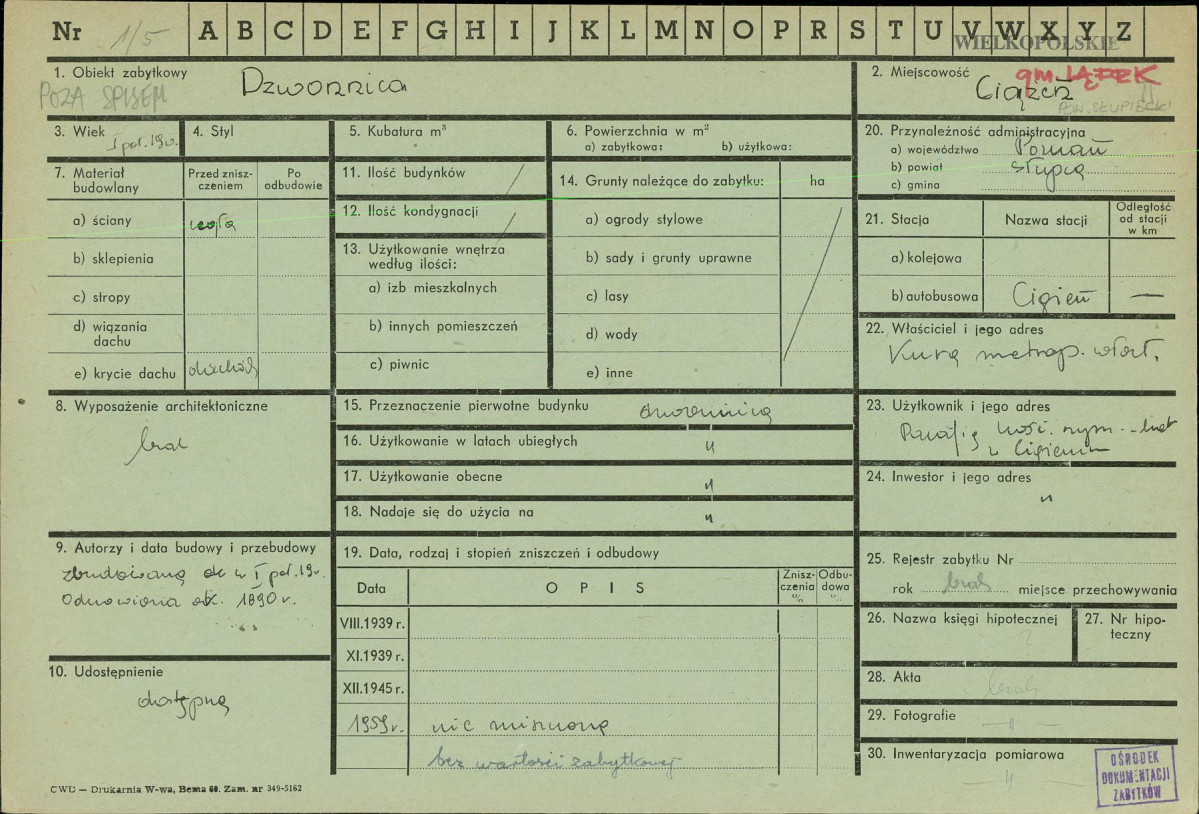 Nr 1/5 A B C D E F G H I J K L M N O P R S T U V W X Y Z
WIELKOPOLSKIE
1. Obiekt zabytkowy Dzwonnica
POZA SPISEM
2. Miejscowość gm. LĄDEK
Ciążeń
POW. SŁUPECKI
3. Wiek I poł. 19 w.
4. Styl
5. Kubatura m³
6. Powierzchnia w m²
a) zabytkowa: b) użytkowa:
7. Materiał budowlany
Przed zniszczeniem
Po odbudowie
a) ściany
b) sklepienia
c) stropy
d) wiązania dachu
e) krycie dachu
8. Wyposażenie architektoniczne
brak
9. Autorzy i data budowy i przebudowy
zbudowana ok w I poł. 19 w.
Odnowiona ok. 1890 r.
10. Udostępnienie
dostępna
11. Ilość budynków /
12. Ilość kondygnacji /
13. Użytkowanie wnętrza według ilości:
a) izb mieszkalnych
b) innych pomieszczeń
c) piwnic
14. Grunty należące do zabytku: ha
a) ogrody stylowe
b) sady i grunty uprawne
c) lasy
d) wody
e) inne
15. Przeznaczenie pierwotne budynku dzwonnica
16. Użytkowanie w latach ubiegłych "
17. Użytkowanie obecne "
18. Nadaje się do użycia na "
19. Data, rodzaj i stopień zniszczeń i odbudowy
Data
OPIS
Zniszczenia %
Odbudowa %
VIII.1939 r.
XI.1939 r.
XII.1945 r.
1959 r. nie miszczona
bez wartości zabytkowej
20. Przynależność administracyjna
a) województwo Poznań
b) powiat Słupca
c) gmina
21. Stacja
Nazwa stacji
Odległość od stacji w km
a) kolejowa
b) autobusowa Ciążeń —
22. Właściciel i jego adres
Kuria metrop.
23. Użytkownik i jego adres
Parafia kość. rzym.-kat
w Ciążeniu
24. Inwestor i jego adres
"
25. Rejestr zabytku Nr
rok brak miejsce przechowywania
26. Nazwa księgi hipotecznej
?
27. Nr hipoteczny
28. Akta
brak
29. Fotografie
"
30. Inwentaryzacja pomiarowa
"
OŚRODEK
DOKUMENTACJI
ZABYTKÓW
CWD — Drukarnia W-wa, Bema 60. Zam. nr 349-5162